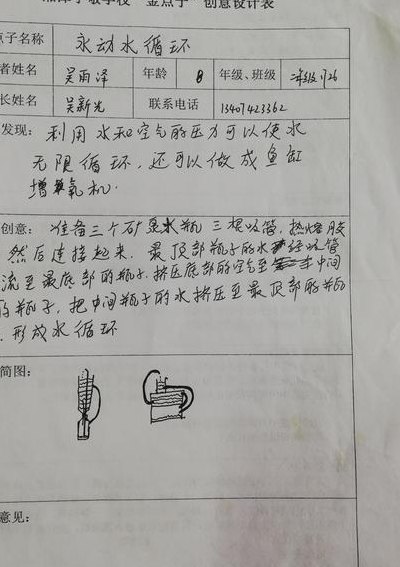 学校"金点子"创意设计表
点子名称 永动水循环
者姓名 吴雨泽 年龄 8 年级、班级
长姓名 吴新光 联系电话 13407423362
发现: 利用水和空气的压力可以使水
无限循环,还可以做成鱼缸
增氧机.
创意: 准备三个矿泉水瓶 三根吸管,热熔胶
然后连接起来.最顶部瓶子的水经吸管
流至最底部的瓶子.挤压底部的空气至中间
的瓶子,把中间瓶子的水挤压至最顶部的瓶
.形成水循环
简图:
意见: